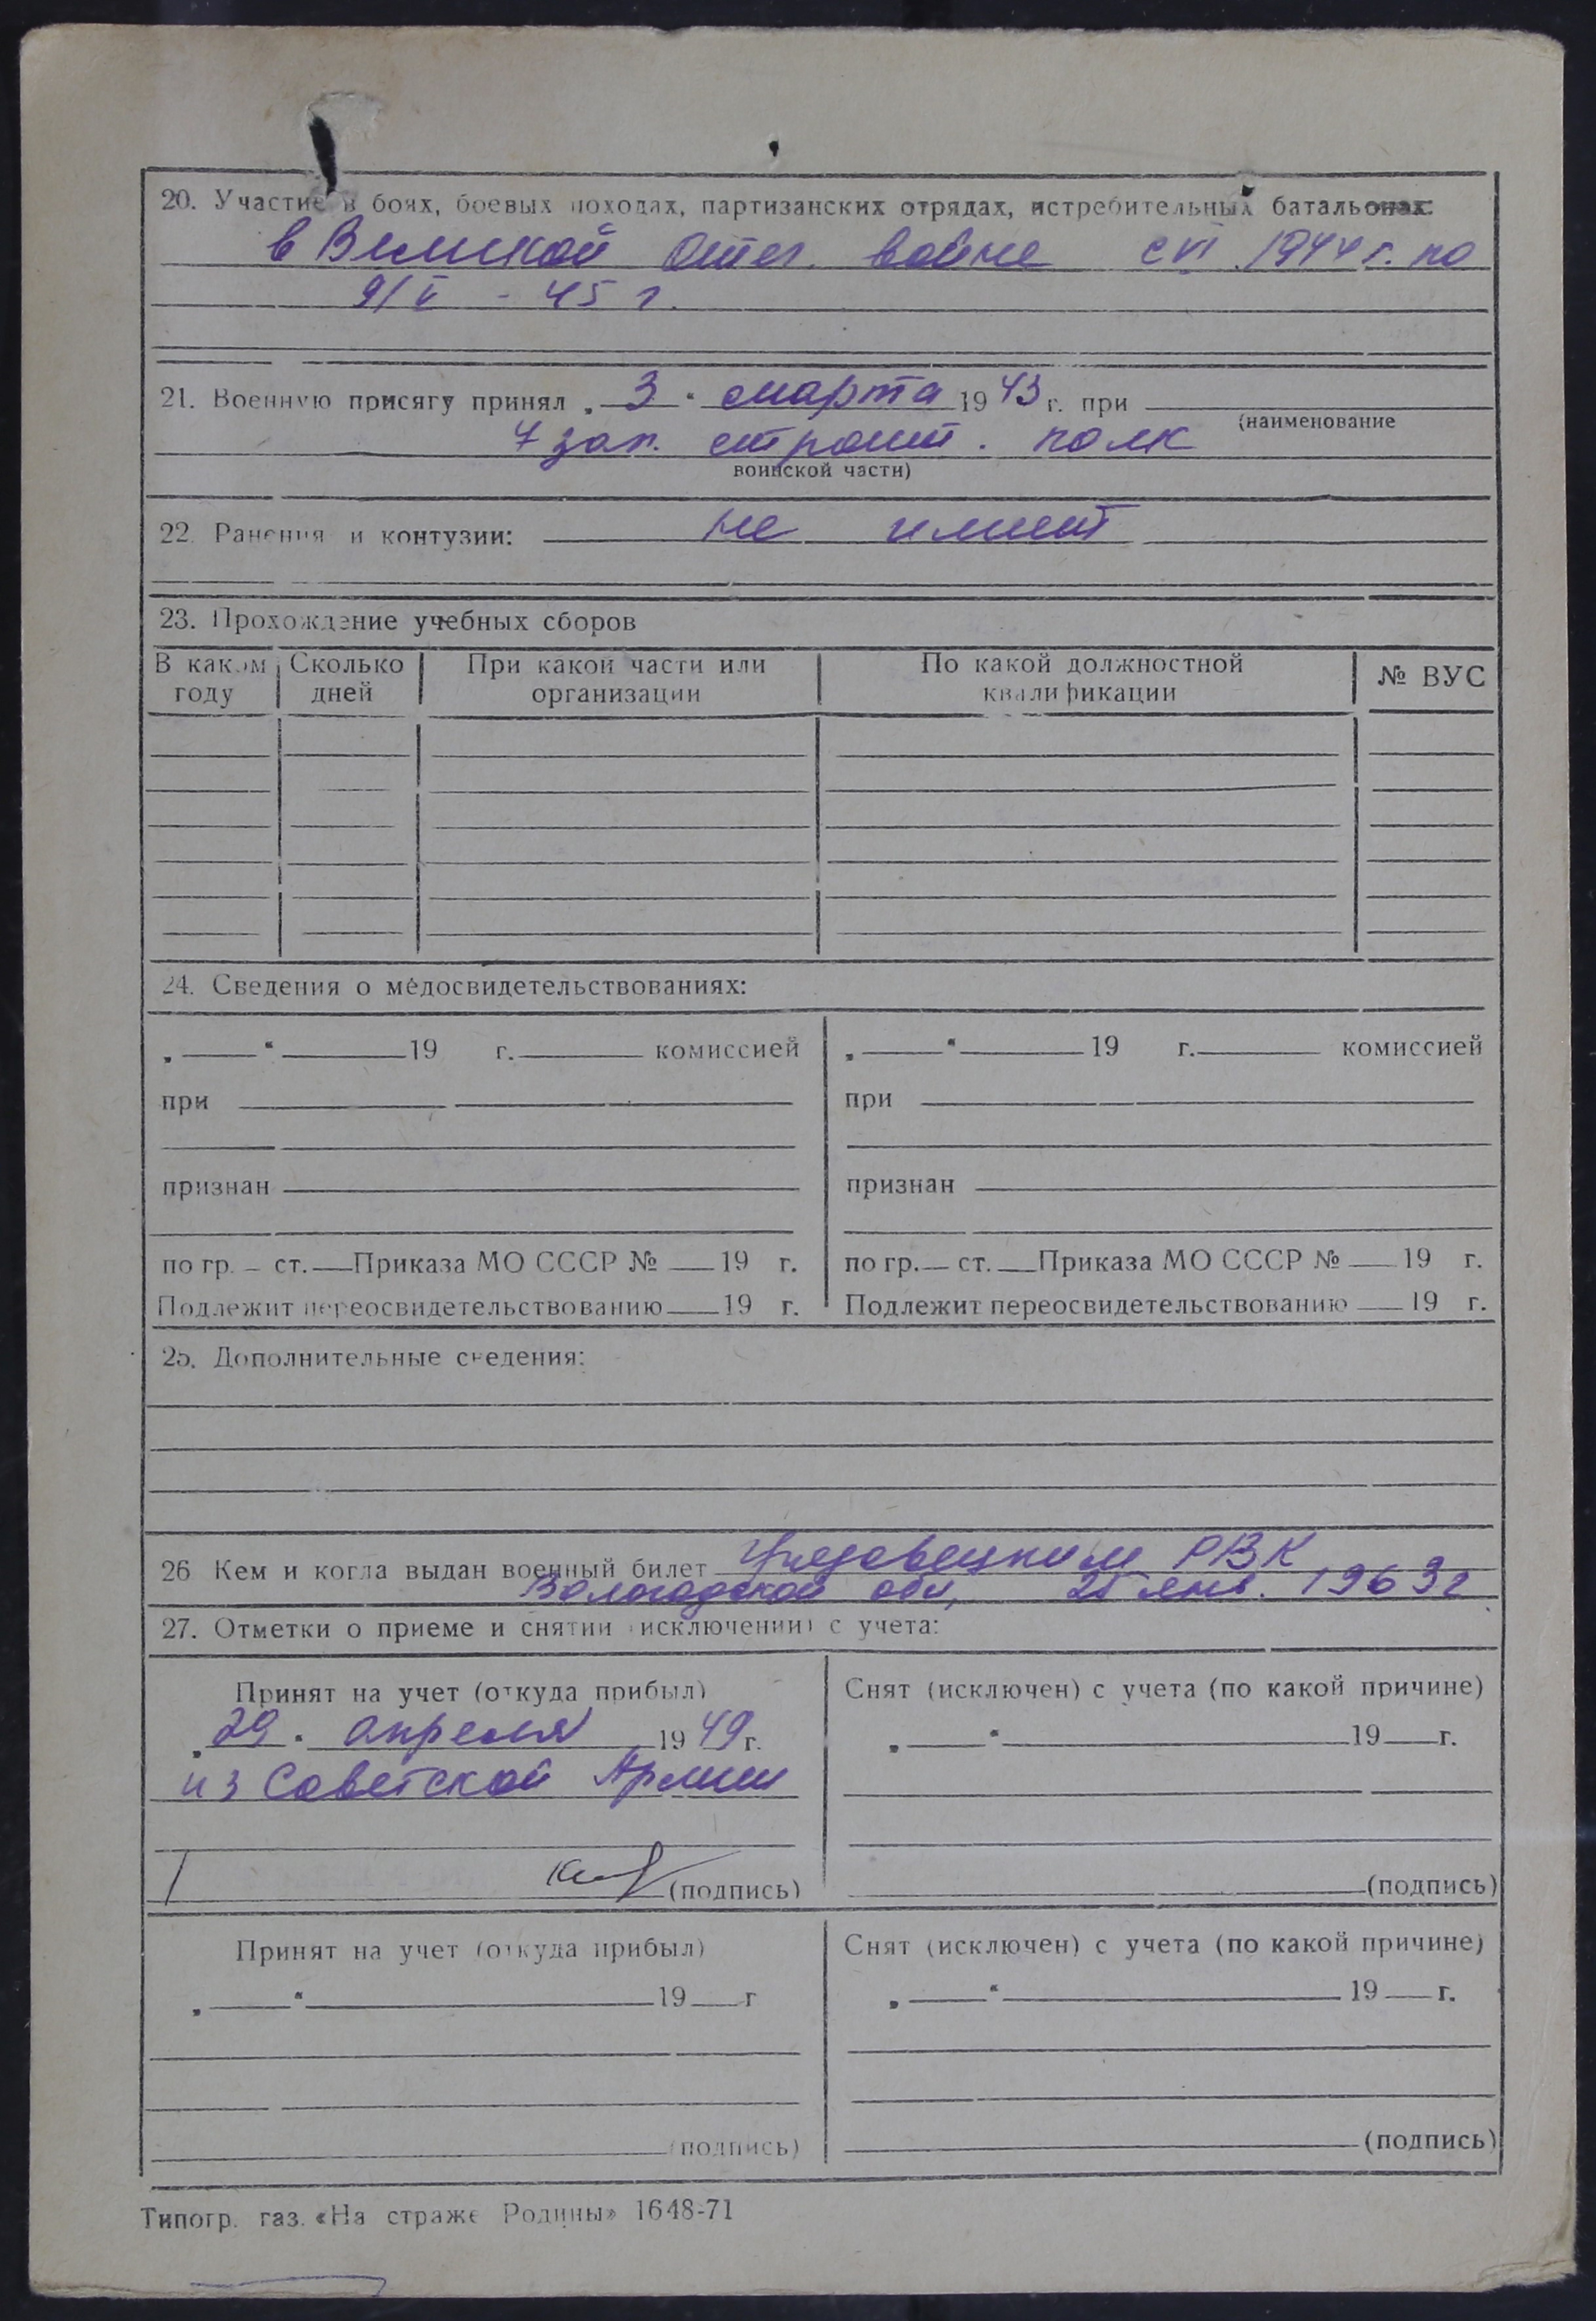 20. Участие в боях, боевых походах, партизанских отрядах, истребительных батальонах:
в Великой Отеч. войне с VI 1944 г. по
9/V - 45 г.
21. Военную присягу принял „ 3 “ марта 1943 г. при
(наименование
7 зап. строит. полк
воинской части)
22. Ранения и контузии: не имеет
23. Прохождение учебных сборов
В каком году Сколько дней При какой части или организации По какой должностной квалификации № ВУС
24. Сведения о медосвидетельствованиях:
„ “ 19 г. комиссией „ “ 19 г. комиссией
при при
признан признан
по гр. ст. Приказа МО СССР № 19 г. по гр. ст. Приказа МО СССР № 19 г.
Подлежит переосвидетельствованию 19 г. Подлежит переосвидетельствованию 19 г.
25. Дополнительные сведения:
26 Кем и когда выдан военный билет Грязовецким РВК
Вологодской обл, 25 янв. 1963 г
27. Отметки о приеме и снятии (исключении) с учета:
Принят на учет (откуда прибыл) Снят (исключен) с учета (по какой причине)
„ 29 “ апреля 1949 г. „ “ 19 г.
из Советской Армии
(подпись) (подпись)
Принят на учет (откуда прибыл) Снят (исключен) с учета (по какой причине)
„ “ 19 г „ “ 19 г.
(подпись) (подпись)
Типогр. газ. «На страже Родины» 1648-71